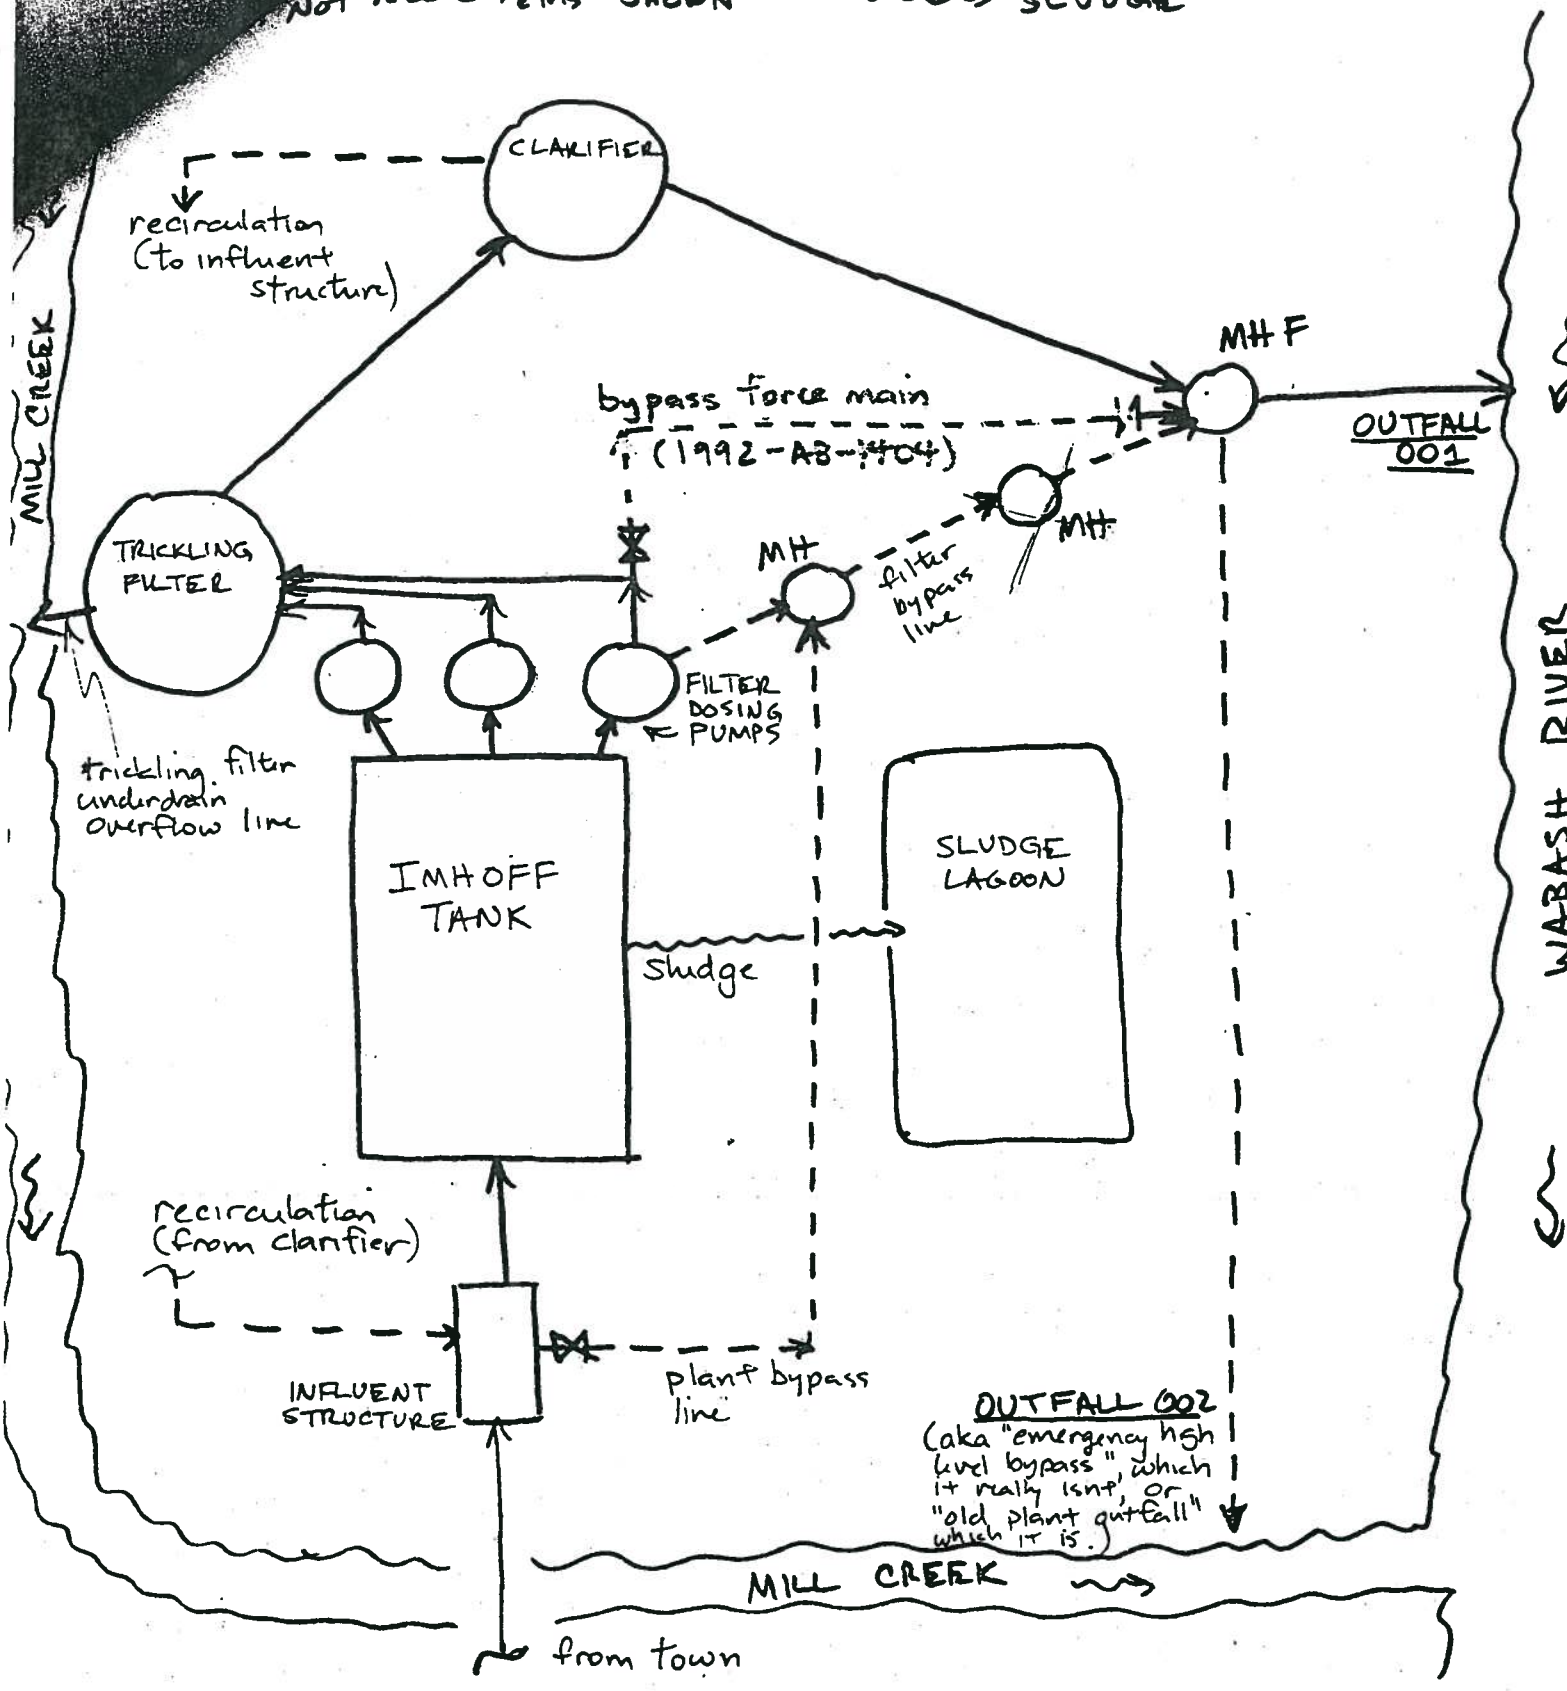 NOT
SHOWN
SLUDGE
CLARIFIER
recirculation
(to influent
structure)
MILL CREEK
MH F
bypass force main
(1992-AB-1404)
OUTFALL
001
MH
MH
filter
bypass
line
TRICKLING
FILTER
FILTER
DOSING
PUMPS
trickling filter
underdrain
overflow line
IMHOFF
TANK
SLUDGE
LAGOON
Sludge
WABASH RIVER
recirculation
(from clarifier)
INFLUENT
STRUCTURE
plant bypass
line
OUTFALL 002
(aka "emergency high
level bypass", which
it really isnt, or
"old plant outfall"
which it is.)
MILL CREEK
from town